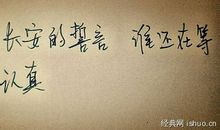 长安的誓言 谁还在等
认真
经典网 ishuo.cn